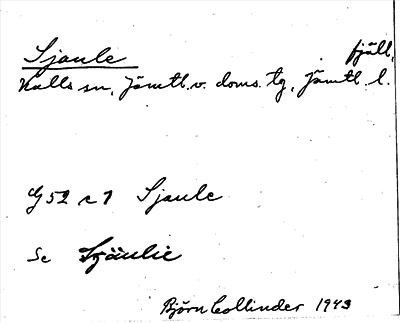 Sjaule fjäll,
Kalls sn, Jämtl. v. doms. tg, Jämtl. l.
G 52 c 1 Sjaule
Se Sjäulie
Björn Collinder 1943